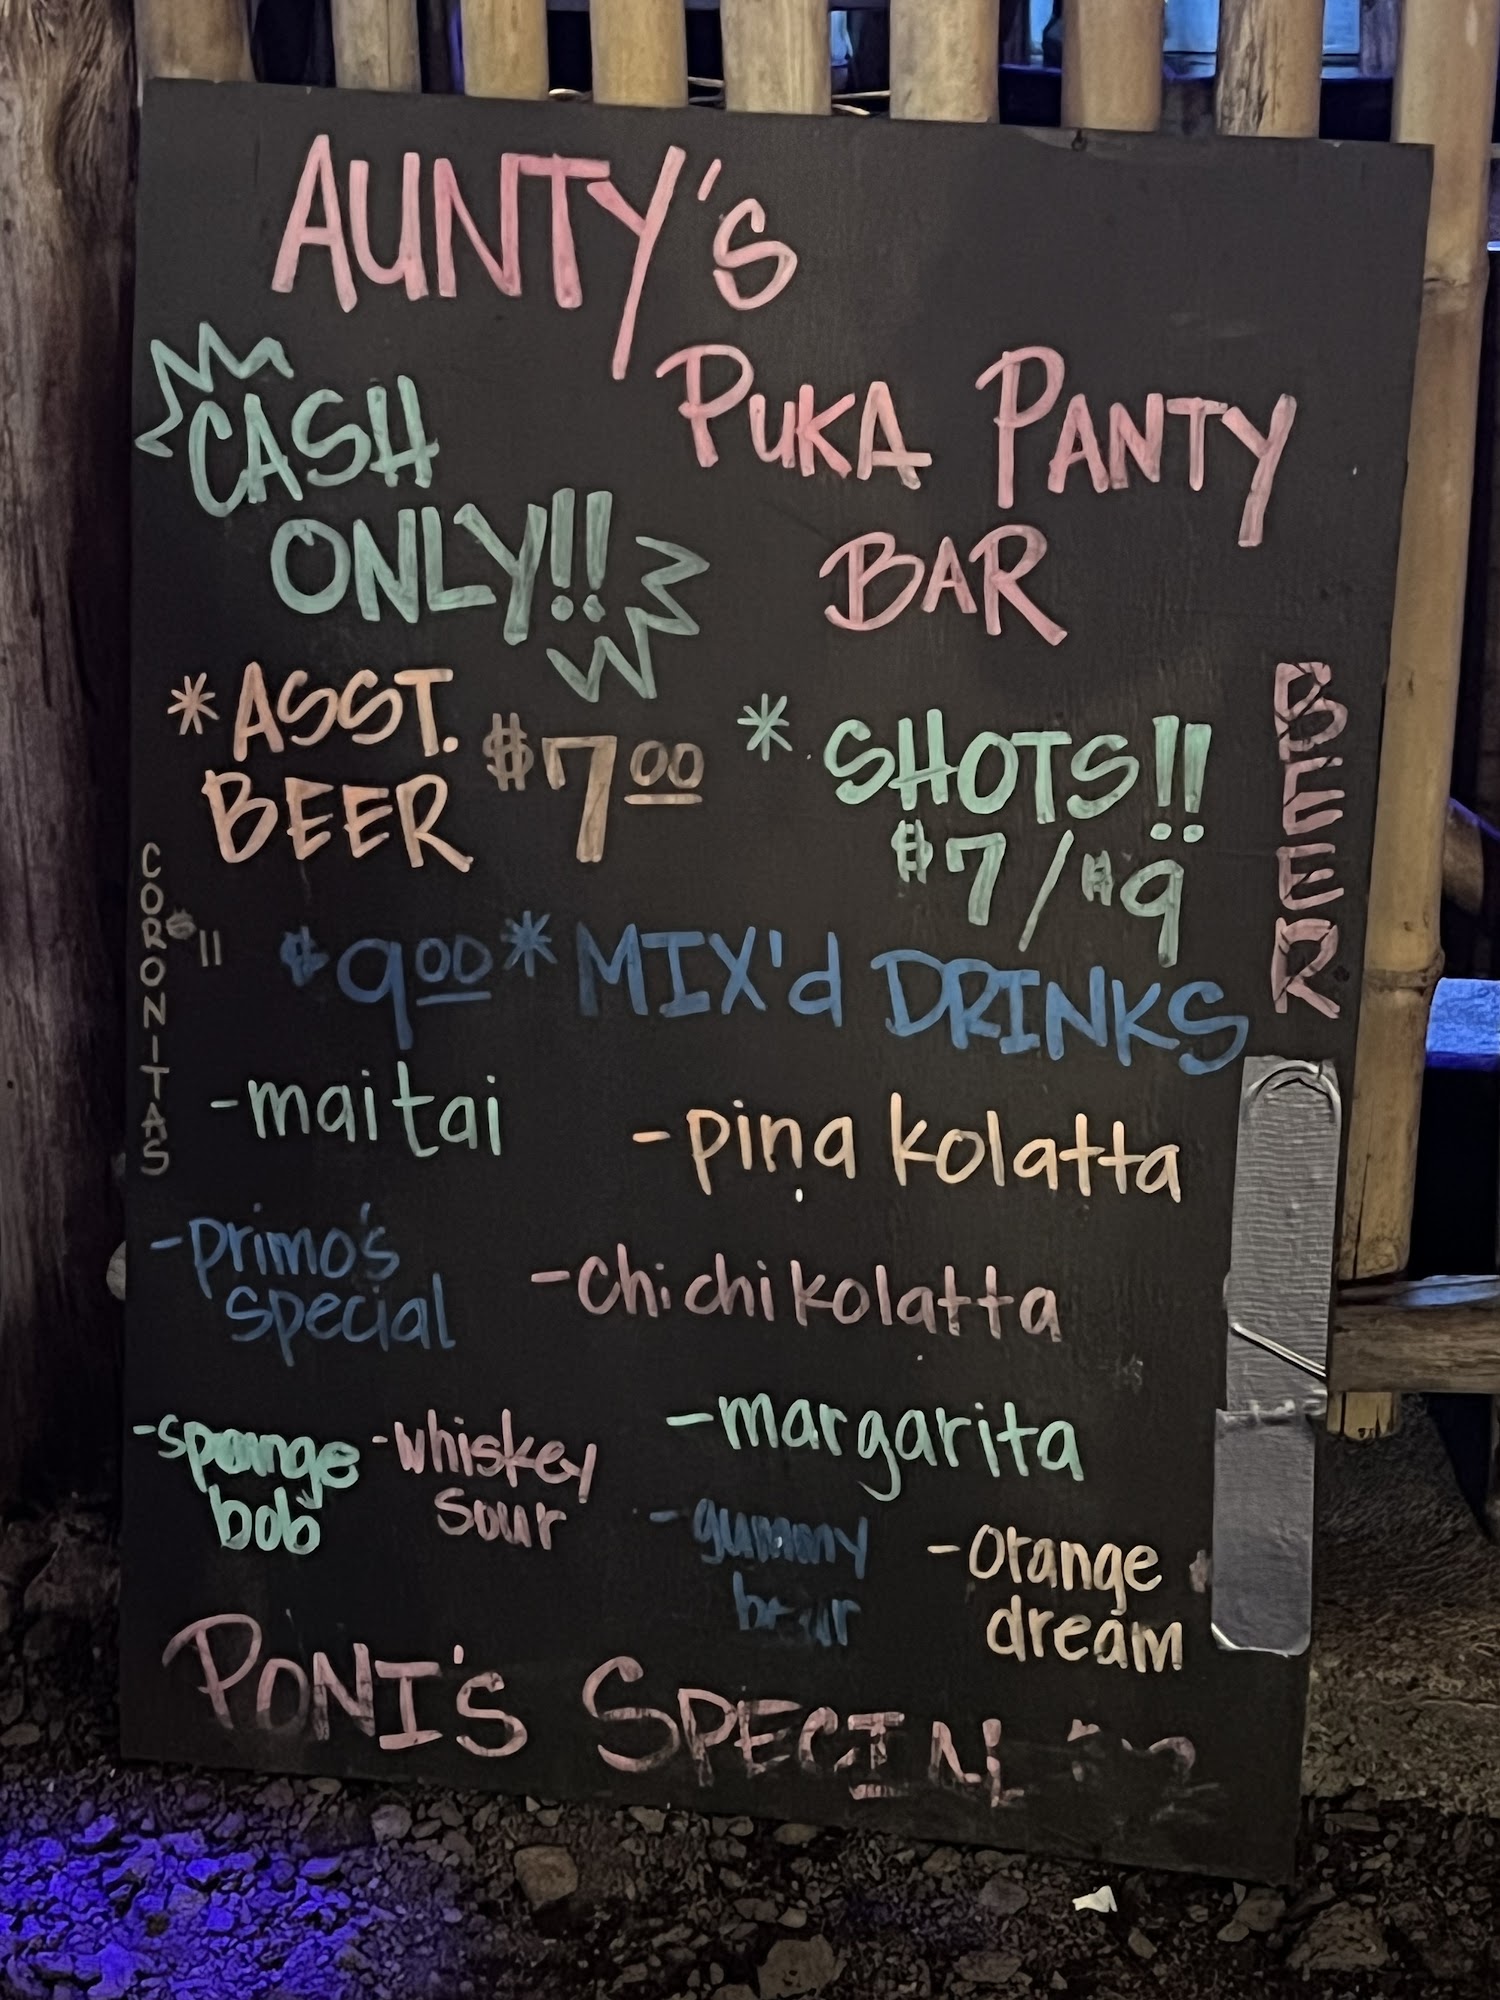 AUNTY'S
PUKA PANTY
BAR
CASH
ONLY!!
* ASST.
BEER
$7.00
* SHOTS!!
$7/$9
BEER
CORONITAS
$11
$9.00 * MIX'd DRINKS
-mai tai
-pina kolatta
-primo's
special
-chi chi kolatta
-sponge
bob
-whiskey
sour
-margarita
-gummy
-orange
dream
PONI'S SPECIAL